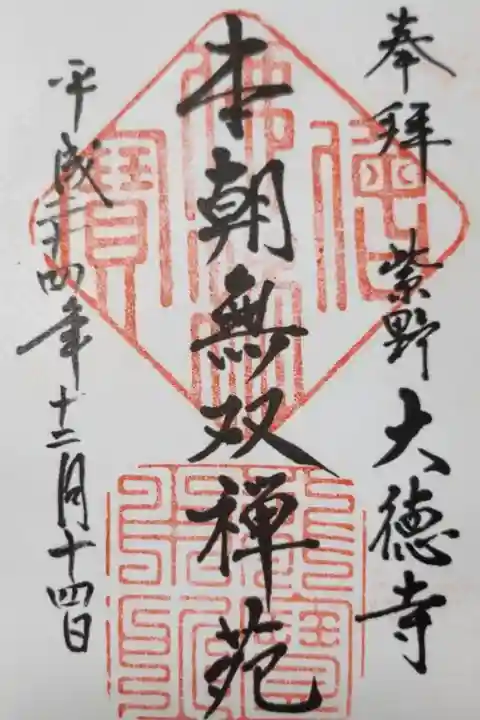 奉拝 紫野 大徳寺
本朝無双禅苑
平成二十四年十二月十四日